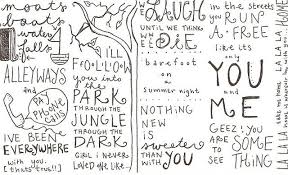 moats
boats
water
falls
ALLEYWAYS
and
PAY
PHONE
CALLS
I'VE BEEN
EVERYWHERE
with you.
[that's true!!]
I'LL
FOLLOW
you into
the
PARK
THROUGH THE
JUNGLE
THROUGH THE
DARK
Girl i Never
Loved one Like...
we LAUGH
UNTIL WE THINK
we'll
DIE
barefoot
on a
summer night
NOTHING
NEW
is
sweeter
THAN
WITH YOU
in the streets
you RUN
A-FREE
like its
only
YOU
and
ME
GEEZ! YOU
ARE SOME
TO SEE THING
LA LA LA LA HOME